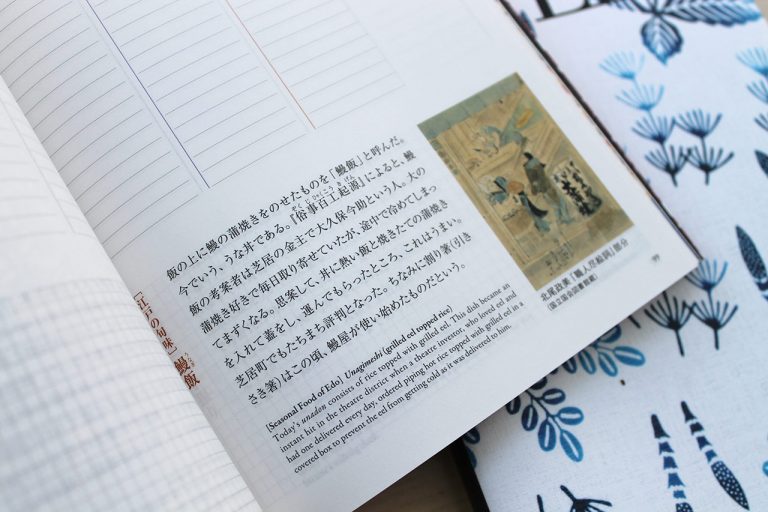 [江戸の旬味] 鰻飯
飯の上に鰻の蒲焼きをのせたものを「鰻飯」と呼んだ。
今でいう、うな丼である。『俗事百工起源』によると、鰻
飯の考案者は芝居の金主で大久保今助という人。大の
蒲焼き好きで毎日取り寄せていたが、途中で冷めてしまっ
てまずくなる。思案して、丼に熱い飯と焼きたての蒲焼き
を入れて蓋をし、運んでもらったところ、これはうまい。
芝居町でもたちまち評判となった。ちなみに割り箸(引き
さき箸)はこの頃、鰻屋が使い始めたものだという。
[Seasonal Food of Edo] Unagimeshi (grilled eel topped rice)
Today's unadon consists of rice topped with grilled eel. This dish became an
instant hit in the theatre district when a theatre investor, who loved eel and
had one delivered every day, ordered piping hot rice topped with grilled eel in a
covered box to prevent the eel from getting cold as it was delivered to him.
北尾政美『職人尽絵詞』部分
(国立国会図書館蔵)